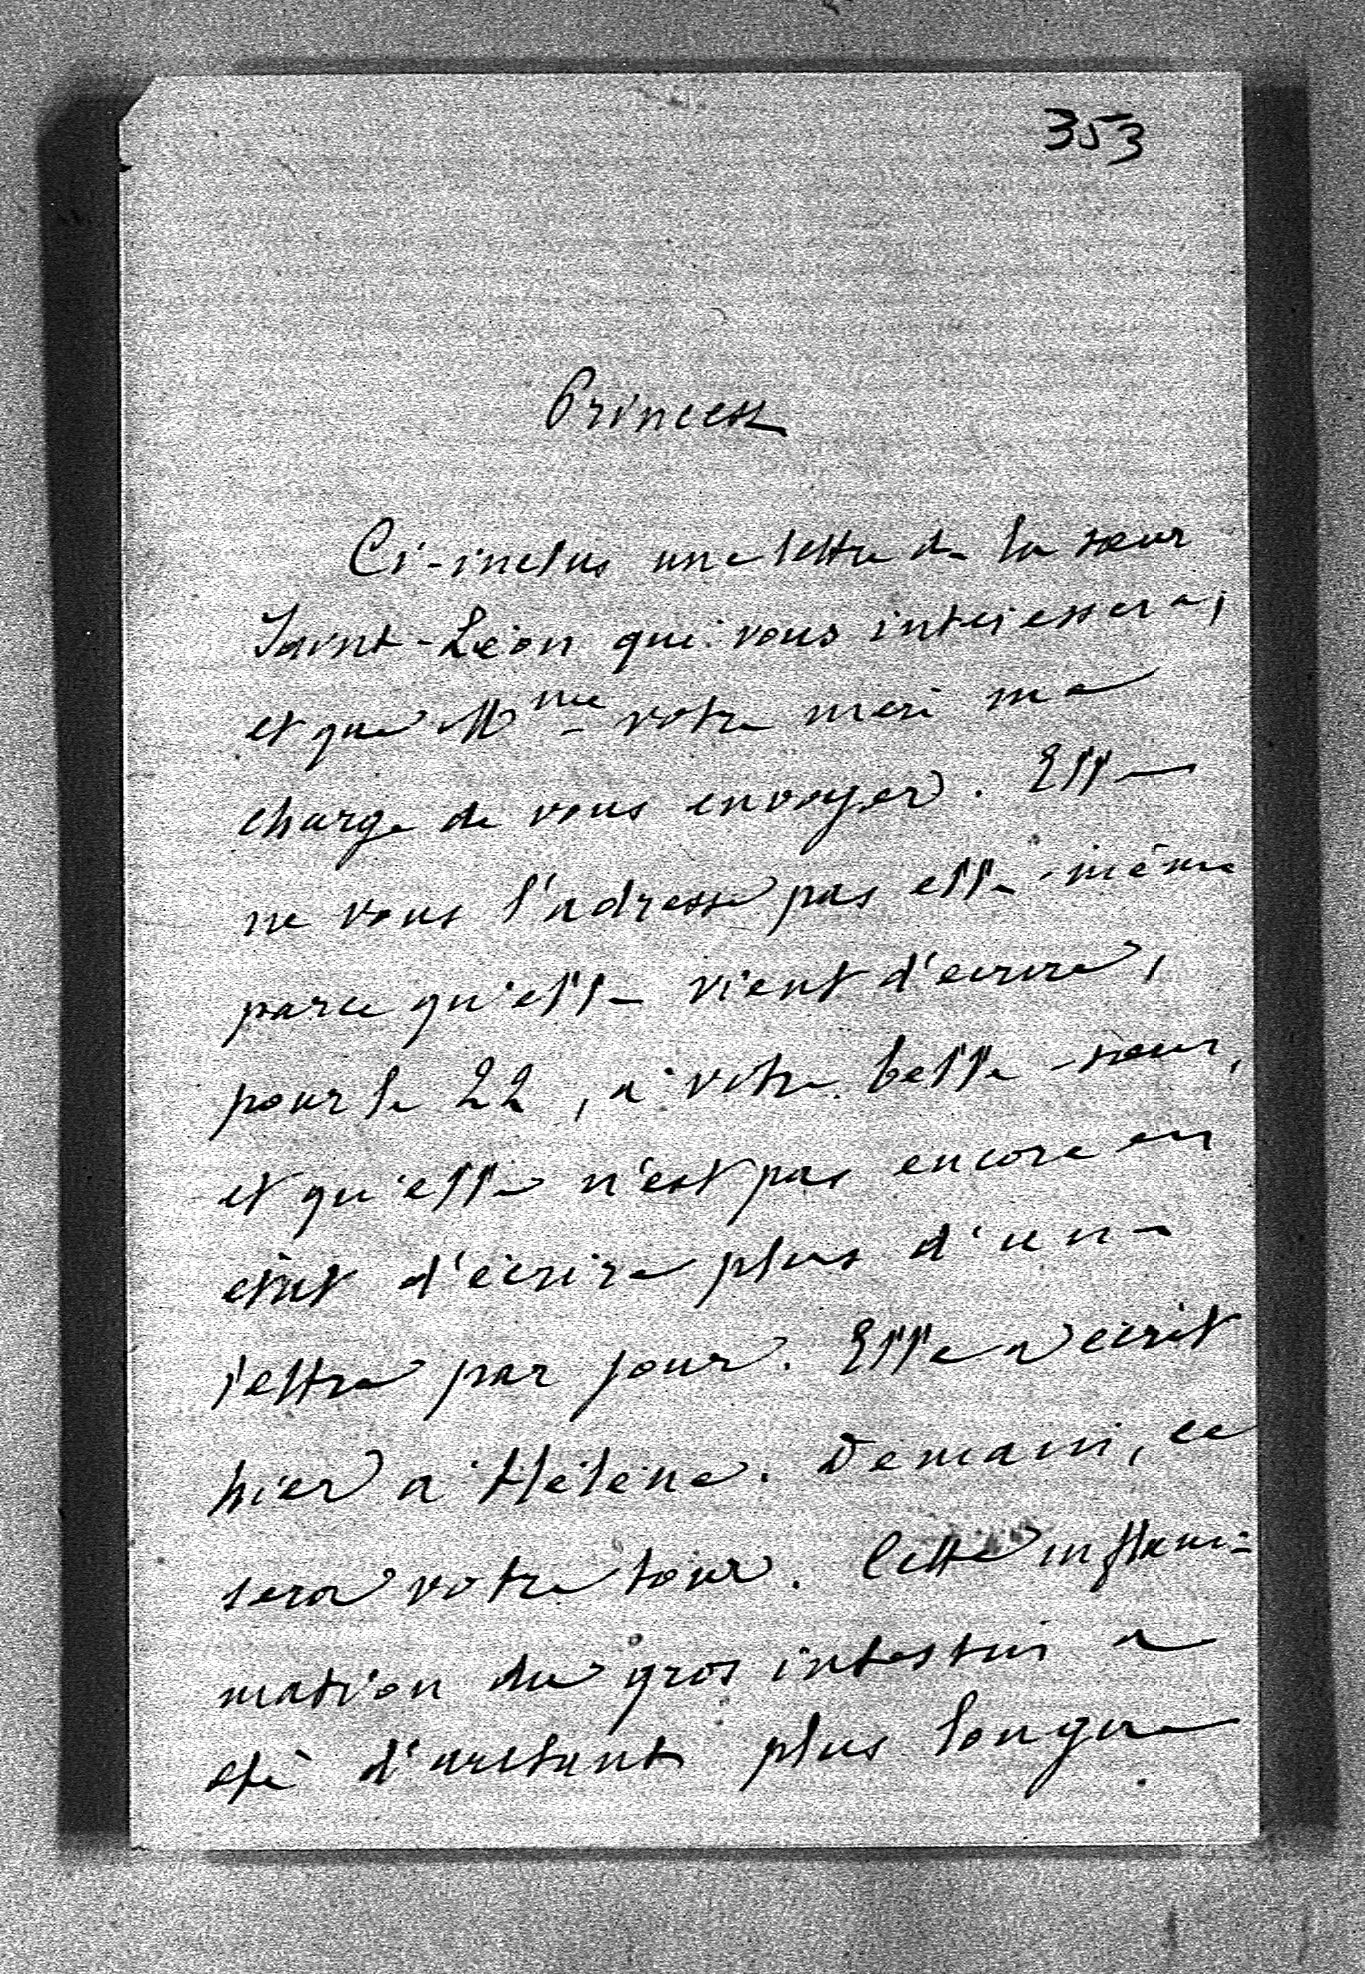 353
Princesse
Ci-inclus une lettre de la sœur
Saint-Léon qui vous intéressera,
et que Mme votre mère m'a
charge de vous envoyer. Elle
ne vous l'adresse pas elle-même
parce qu'elle vient d'écrire,
pour le 22, à votre belle-sœur,
et qu'elle n'est pas encore en
état d'écrire plus d'une
lettre par jour. Elle a écrit
hier à Hélène. Demain, ce
sera votre tour. Cette inflam=
mation du gros intestin a
été d'autant plus longue